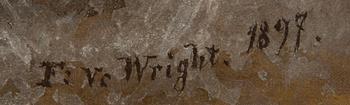 F. V. Wright. 1897.